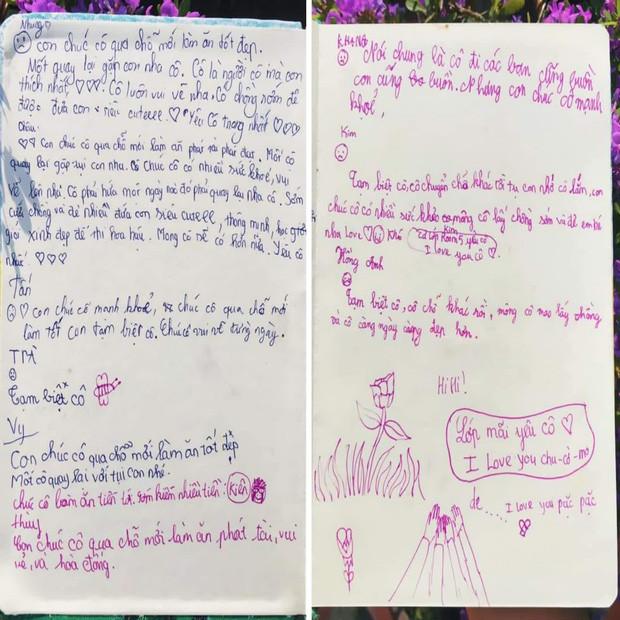 Nhung ♡
Con chúc cô qua chỗ mới làm ăn tốt đẹp.
Mốt quay lại gặp con nha cô. Cô là người cô mà con
thích nhất ♡♡♡. Cô luôn vui vẻ nha. Cô chồng sớm để
được đứa con siêu cuteee. ♡ Yêu cô trang nhất ♡♡♡
Diệu:
♡♡ Con chúc cô qua chỗ mới làm ăn phát tài phát đạt. Mốt cô
quay lại gặp tụi con nhu. Chúc cô có nhiều sức khoẻ, vui
vẻ lên nhé. Cô phải hứa một ngày nào đó phải quay lại nha cô. Sớm
cưới chồng và đẻ nhiều đứa con siêu cuteee, thông minh, học giỏi
giỏi xinh đẹp để thi hoa hậu. Mong cô sẽ có hơn nữa. Yêu cô
nhất ♡♡♡
Tấn
♡ con chúc cô mạnh khoẻ, chúc cô qua chỗ mới
làm tốt con tạm biệt cô. Chúc cô vui vẻ từng ngày.
TM
Tạm biệt cô
Vy
Con chúc cô qua chỗ mới làm ăn tốt đẹp
Mốt cô quay lại với tụi con nhé.
chúc cô làm ăn tiến tới. sớm kiếm nhiều tiền: Kiên
thuy
Con chúc cô qua chỗ mới làm ăn phát tài, vui
vẻ, và hoà đồng.
Nói chung là cô đi các bạn cũng buồn
con cũng buồn. Nhưng con chúc cô mạnh
khoẻ,
Kim
Tạm biệt cô, cô chuyển chỗ khác rồi tụi con nhớ cô lắm, con
chúc cô có nhiều sức khoẻ mong cô lấy chồng sớm và đẻ em bé
nha Love ♡
Kim
yêu cô
I love you cô ♡
Hồng Anh
Tạm biệt cô, cô chỗ khác rồi, mông cô mau lấy chồng
và cô càng ngày càng đẹp hơn.
Hi Hi!
Lớp mãi yêu cô ♡
I Love you chu-cà-mo
de...... I love you pặc pặc